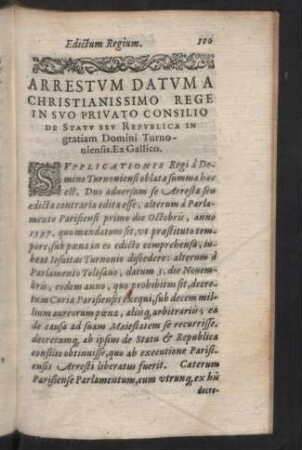 Edictum Regium. 100
ARRESTVM DATVM A
CHRISTIANISSIMO REGE
IN SVO PRIVATO CONSILIO
DE STATV SEV REPVBLICA IN
gratiam Domini Turno-
niensis. Ex Gallico.
SVPPLICATIONIS Regi à Do-
mino Turnoniensi oblata summa hæc
est. Duo aduersum se Arresta seu
edicta contraria edita esse, alterum à Parla-
mento Parisiensi primo die Octobris, anno
1597. quo mandatum sit, vt præstituto tem-
pore, sub pœna in eo edicto comprehensa, iu-
beat Iesuitas Turnonio discedere: alterum à
Parlamento Tolosano, datum 3. die Nouem-
bris, eodem anno, quo prohibitum sit, decre-
tum Curiæ Parisiensis exequi, sub decem mil-
lium aureorum pœna, aliisq, arbitrariis; ea
de causa ad suam Maiestatem se recurrisse.
decretumq, ab ipsius de Statu & Republica
consilio obtinuisse, quo ab executione Parisi-
ensis Arresti liberatus fuerit. Cæterum
Parisiense Parlamentum, cum vtrunq, ex his
decre-